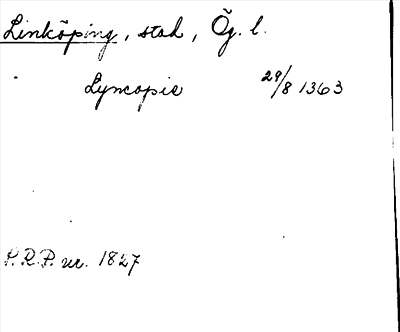 Linköping, stad, Ög. l.
Lyncopie 29/8 1363
S.R.P. nr. 1827